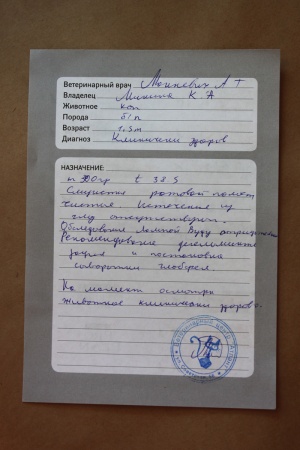 Ветеринарный врач Моткевич А Т
Владелец К А
Животное кот
Порода б/п
Возраст 1,5 м
Диагноз Клинически здоров
НАЗНАЧЕНИЕ:
m 900гр t 38 5
Слизистая ротовой полости
чистая Истечения из
глаз отсутствуют.
Обследование Лампой Вуду отрицательно
Рекомендование дегельминти
зация и постановка
сыворотки глобфел
На момент осмотра
животное клинически здорово.